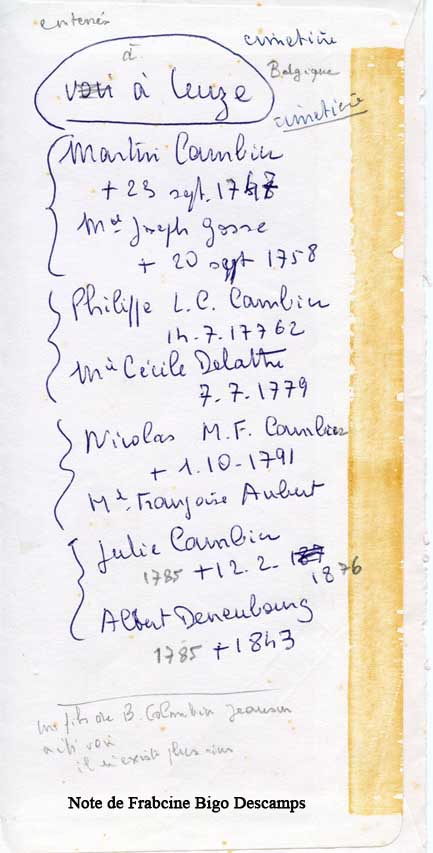 enterrés
à
cimetière
voir à Leuze
Belgique
cimetière
Martin Cambier
+ 23 sept. 1747
Me Joseph Gosse
+ 20 sept 1758
Philippe L. C. Cambier
14.7.17762
Me Cécile Delattre
7.7.1779
Nicolas M. F. Cambier
+ 1.10-1791
Me Françoise Aubert
Julie Cambier
1785 +12.2-
1876
Albert Deneubourg
1785 +1843
un fils de B.
a été voir
il n'existe plus rien
Note de Frabcine Bigo Descamps